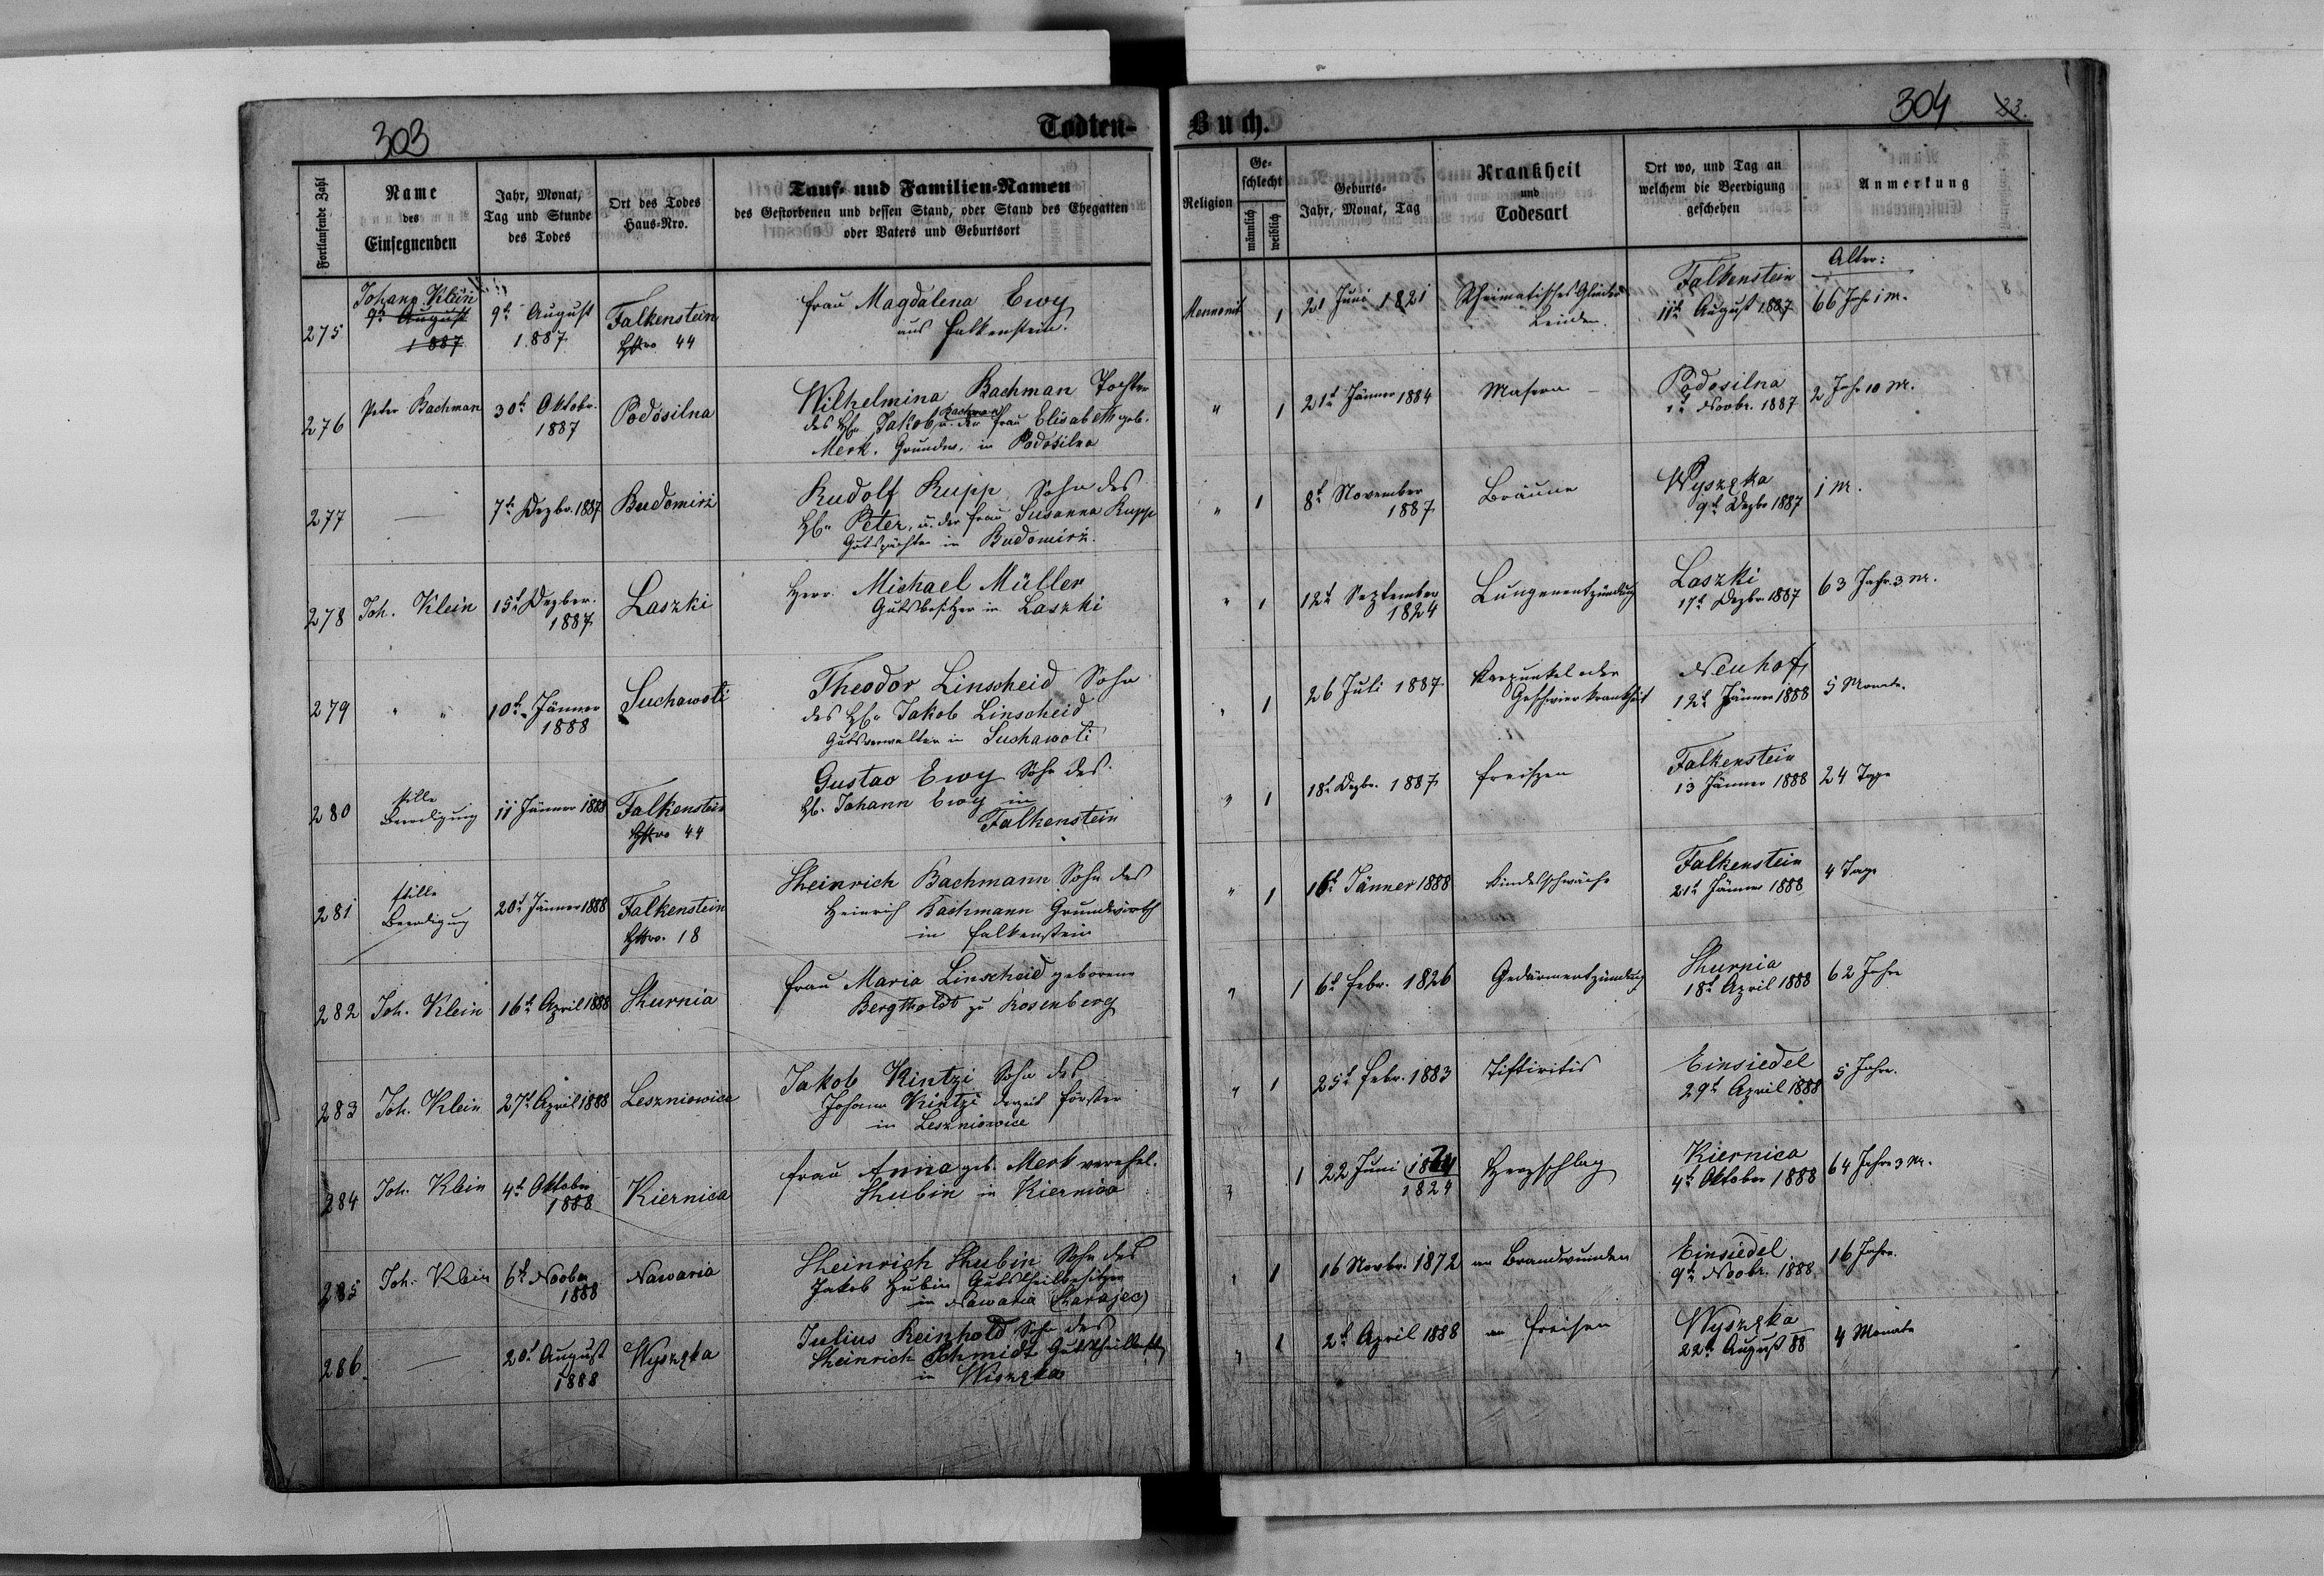 303
Todten-
Buch.
304
23.
Fortlaufende Zahl
Name
des
Einsegnenden
Jahr, Monat,
Tag und Stunde
des Todes
Ort des Todes
Haus-Nro.
Tauf- und Familien-Namen
des Gestorbenen und dessen Stand, oder Stand des Ehegatten
oder Vaters und Geburtsort
Religion
Ge-
schlecht
männlich
weiblich
Geburts-
Jahr, Monat, Tag
Krankheit
und
Todesart
Ort wo, und Tag an
welchem die Beerdigung
geschehen
Anmerkung
Alter:
275
Johann Klein
9t August
1887
9t August
1887
Falkenstein
44
Frau Magdalena Ewy
aus Falkenstein.
Mennonit
1
21 Juni 1821
Rheimatisches Glieder
Leiden.
Falkenstein
11t August 1887
66 Jahr 1 M.
276
Peter Bachman
30t Oktobr.
1887
Podosilna
Wilhelmina Bachman Tochter
des H. Jakob Bachman u. der Frau Elisabeth geb.
Merk. Grundw. in Podosilna
"
1
21t Jänner 1884
Masern -
Podosilna
1t Novbr. 1887
2 Jahr 10 M.
277
—
7t Dezbr. 1887
Budomirz
Rudolf Rupp Sohn des
H. Peter, u. der Frau Susanna Rupp
Gutspächter in Budomirz.
"
1
8t November
1887
Bräune
Wyszęka
9t Dezbr 1887
1 M.
278
Joh. Klein
15t Dezber.
1887
Laszki
Herr Michael Müller
Gutsbesitzer in Laszki
"
1
12t September
1824
Lungenentzündung
Laszki
17t Dezbr 1887
63 Jahr 3 M.
279
" "
10t Jänner
1888
Suchawoli
Theodor Linscheid Sohn
des H. Jakob Linscheid
Gutsverwalter in Suchawoli
"
1
26 Juli 1887
Karpunkel oder
Neuhof
12t Jänner 1888
5 Monate.
280
stille
Beerdigung
11 Jänner 1888
Falkenstein
44
Gustav Ewy Sohn des
H. Johann Ewy in
Falkenstein
"
1
18t Dezbr. 1887
Freiszen
Falkenstein
13 Jänner 1888
24 Tage
281
stille
Beerdigung
20t Jänner 1888
Falkenstein
18
Heinrich Bachmann Sohn des
Heinrich Bachmann Grundwirth
in Falkenstein
"
1
16t Jänner 1888
Kindesschwäche
Falkenstein
21t Jänner 1888
4 Tage
282
Joh. Klein
16t April 1888
Hurnia
Frau Maria Linscheid geborene
Bergtholdt zu Rosenberg
"
1
6t Febr. 1826
Gedärmentzündung
Hurnia
18t April 1888
62 Jahre
283
Joh. Klein
27t April 1888
Leszniowice
Jakob Kintzi Sohn des
Johann Kintzi derzeit Förster
in Leszniowice
"
1
25t Febr. 1883
Tiftiritis
Einsiedel
29t April 1888
5 Jahre.
284
Joh. Klein
4t Oktober
1888
Kiernica
Frau Anna geb. Merk verehel.
Hubin in Kiernica
"
1
22 Juni 1824
1824
Herzschlag
Kiernica
4t Oktober 1888
64 Jahre 3 M.
285
Joh. Klein
6t Novbr
1888
Nawaria
Heinrich Hubin Sohn des
Jakob Hubin Gutstheilbesitzer
in Nawaria (Karajec)
"
1
16 Novbr. 1872
an Brandwunden
Einsiedel
9t Novbr. 1888
16 Jahre.
286.
—
20t August
1888
Wyszęka
Julius Reinhold Sohn des
Heinrich Schmidt
in Wiszęka
"
1
2t April 1888
an Freisen
Wyszęka
22t August 88
4 Monate